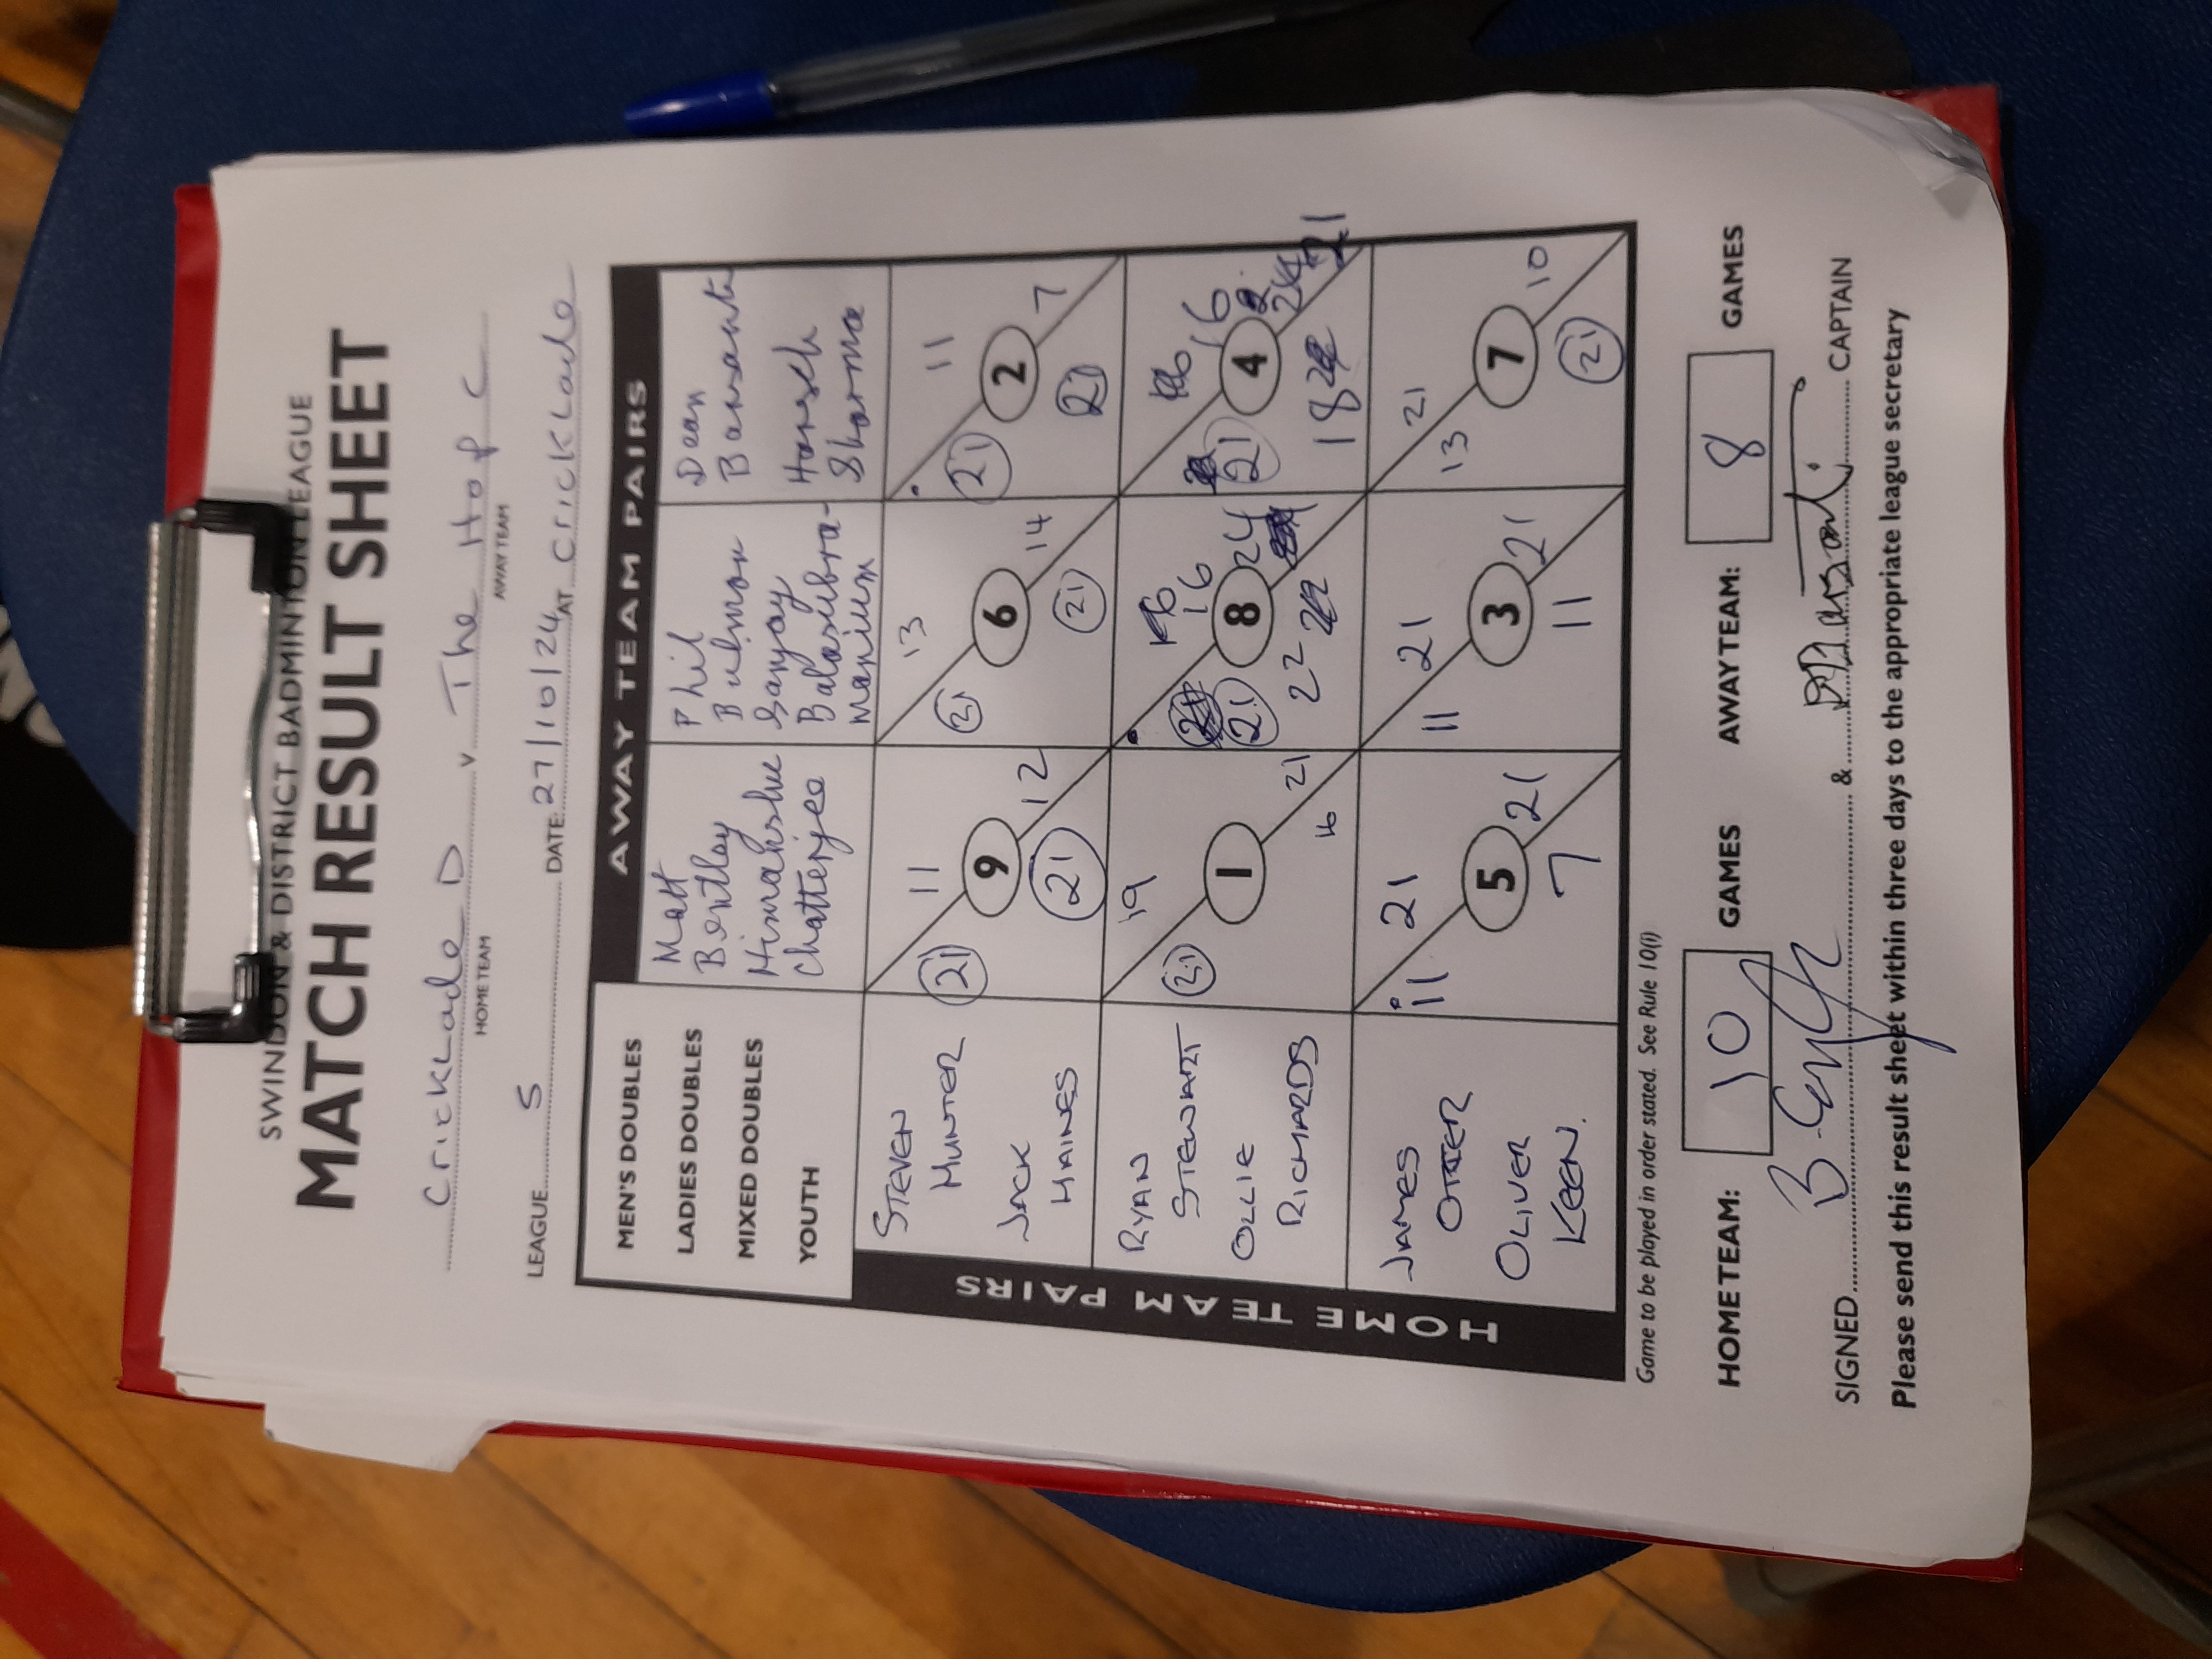 SWINDON & DISTRICT BADMINTON LEAGUE
MATCH RESULT SHEET
Cricklade D v The Hop C
HOME TEAM AWAY TEAM
LEAGUE 5 DATE: 27/10/24 AT Cricklade
MEN'S DOUBLES
LADIES DOUBLES
MIXED DOUBLES
YOUTH
AWAY TEAM PAIRS
Matt
Bentley
Himanshu
Chatterjee
Phil
Buhman
Sanjay
Balasubra-
manium
Dean
Bansant
Harsh
Sharma
HOME TEAM PAIRS
STEVEN
HUNTER
JACK
HAINES
21 11
9
21 12
21 13
6
21 14
21 11
2
21 7
RYAN
STEWART
OLLIE
RICHARDS
21 19
1
16 21
21 16
8
22 24
21 16
4
18 21
JAMES
OTTER
OLIVER
KEEN.
11 21
5
7 21
11 21
3
11 21
13 21
7
21 10
Game to be played in order stated. See Rule 10(i)
HOME TEAM: 10 GAMES AWAY TEAM: 8 GAMES
SIGNED & CAPTAIN
Please send this result sheet within three days to the appropriate league secretary